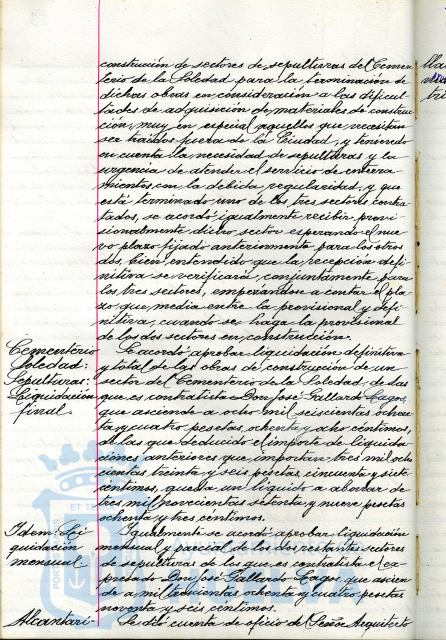 construcción de sectores de sepulturas del Cemen-
terio de la Soledad para la terminación de
dichas obras en consideración a las dificul-
tades de adquisición de materiales de construc-
ción, muy en especial aquellos que necesitan
ser traídos fuera de la Ciudad, y teniendo
en cuenta la necesidad de sepulturas y la
urgencia de atender el servicio de enterra-
mientos con la debida regularidad, y que
está terminado uno de los tres sectores contra-
tados, se acordó igualmente recibir provi-
sionalmente dicho sector esperando el nue-
vo plazo fijado anteriormente para los otros
dos, bien entendido que la recepción defi-
nitiva se verificará conjuntamente para
los tres sectores, empezándose a contar el pla-
zo que media entre la provisional y defi-
nitiva, cuando se haga la provisional
de los dos sectores en construcción.
Cementerio
Soledad:
Sepulturas:
Liquidación
final.
Se acordó aprobar liquidación definitiva
y total de las obras de construcción de un
sector del Cementerio de la Soledad, de las
que es contratista Don José Gallardo Lagos,
que asciende a ocho mil seiscientas ochen-
ta y cuatro pesetas, ochenta y ocho céntimos,
de las que deducido el importe de liquida-
ciones anteriores que importan tres mil ocho
cientas treinta y seis pesetas, cincuenta y siete
céntimos, queda un líquido a abonar de
tres mil novecientas setenta y nueve pesetas
ochenta y tres céntimos.
Idem: Li-
quidación
mensual
Igualmente se acordó aprobar liquidación
mensual y parcial de los dos restantes sectores
de sepulturas de los que es contratista el ex-
presado Don José Gallardo Lagos que ascien-
de a mil trescientas ochenta y cuatro pesetas
noventa y seis céntimos.
Alcantari-
Se dió cuenta de oficio del Señor Arquitecto